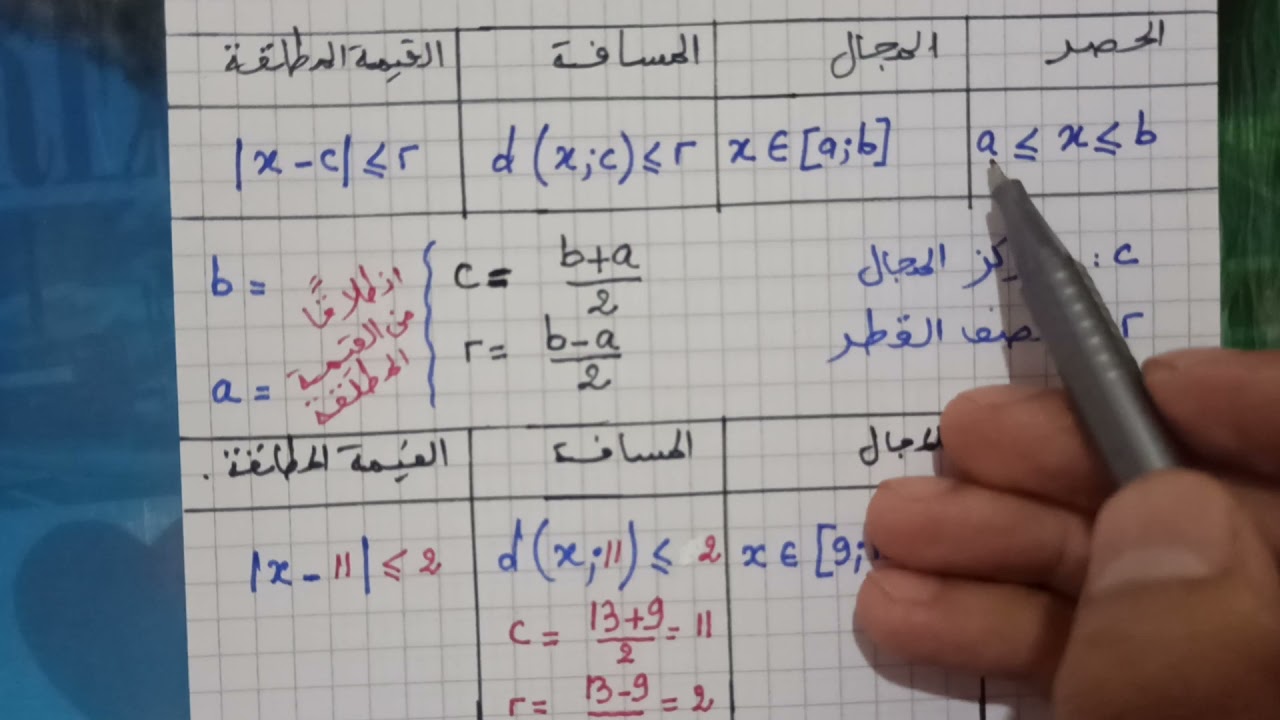 الحصر المجال المسافة القيمة المطلقة
a ≤ x ≤ b x ∈ [a;b] d(x;c) ≤ r |x - c| ≤ r
c : المجال
r القطر
c = b+a / 2
r = b-a / 2
انطلاقًا
من القيمة
المطلقة
b =
a =
المجال المسافة القيمة المطلقة.
x ∈ [9; d(x;11) ≤ 2 |x - 11| ≤ 2
c = 13+9 / 2 = 11
r = 13-9 = 2